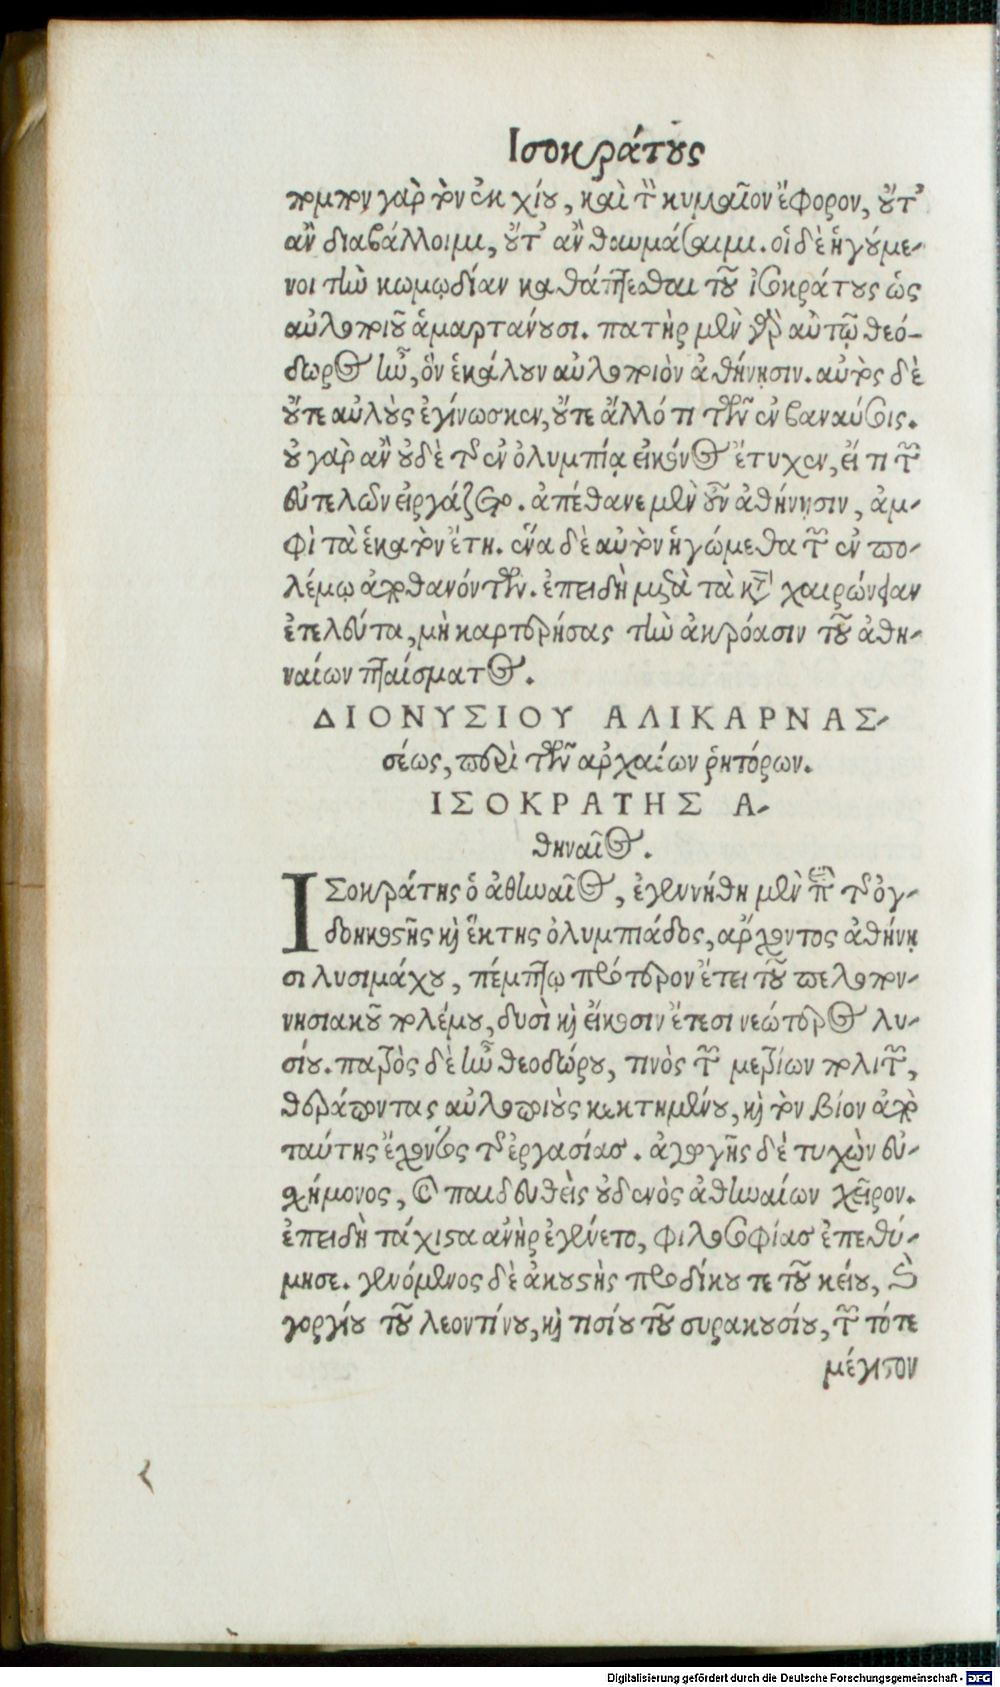 Ισοκράτους
πομπον γὰρ τὸν ἐκ χίου, καὶ τ̀ κυμαῖον ἔφορον, οὔτ'
ἂν διαβάλλοιμι, οὔτ' ἂν θαυμάσαιμι. οἱ δὲ ἡγούμε-
νοι τὴν κωμῳδίαν καθάπτεσθαι τοῦ ἰσοκράτους ὡς
αὐλοποιοῦ ἁμαρτάνουσι. πατὴρ μὲν γὰρ αὐτῷ θεό-
δωρος ἦν, ὃν ἐκάλουν αὐλοποιὸν ἀθήνησιν. αὐτὸς δὲ
οὔτε αὐλοὺς ἐγίνωσκεν, οὔτε ἄλλό τι τῶν ἐν βαναύσοις.
οὐ γὰρ ἂν οὐδὲ τῆς ἐν ὀλυμπίᾳ εἰκόνος ἔτυχεν, εἴ τι τῶν
εὐτελῶν εἰργάζετο. ἀπέθανε μὲν οὖν ἀθήνησιν, ἀμ-
φὶ τὰ ἑκατὸν ἔτη. ἕνα δὲ αὐτὸν ἡγώμεθα τῶν ἐν πο-
λέμῳ ἀποθανόντων. ἐπειδὴ μετὰ τὰ κατὰ χαιρώνειαν
ἐτελεύτα, μὴ καρτερήσας τὴν ἀκρόασιν τοῦ ἀθη-
ναίων πταίσματος.
ΔΙΟΝΥΣΙΟΥ ΑΛΙΚΑΡΝΑΣ-
σέως, περὶ τῶν ἀρχαίων ῥητόρων.
ΙΣΟΚΡΑΤΗΣ Α-
θηναῖος.
ΙΣοκράτης ὁ ἀθηναῖος, ἐγεννήθη μὲν ἐπὶ τῆς ὀγ-
δοηκοστῆς καὶ ἕκτης ὀλυμπιάδος, ἄρχοντος ἀθήνῃ
σι λυσιμάχου, πέμπτῳ πρότερον ἔτει τοῦ πελοπον-
νησιακοῦ πολέμου, δυσὶ καὶ εἴκοσιν ἔτεσι νεώτερος λυ-
σίου. πατρὸς δὲ ἦν θεοδώρου, τινὸς τῶν μετρίων πολιτῶν,
θεράποντας αὐλοποιοὺς κεκτημένου, καὶ τὸν βίον ἀπὸ
ταύτης ἔχοντος τῆς ἐργασίας. ἀγωγῆς δέ τυχὼν εὐ-
σχήμονος, καὶ παιδευθεὶς οὐδενὸς ἀθηναίων χεῖρον.
ἐπειδὴ τάχιστα ἀνὴρ ἐγένετο, φιλοσοφίας ἐπεθύ-
μησε. γενόμενος δὲ ἀκουστὴς προδίκου τε τοῦ κείου, καὶ
γοργίου τοῦ λεοντίνου, καὶ τισίου τοῦ συρακουσίου, τῶν τότε
μέγιστον
Digitalisierung gefördert durch die Deutsche Forschungsgemeinschaft - DFG